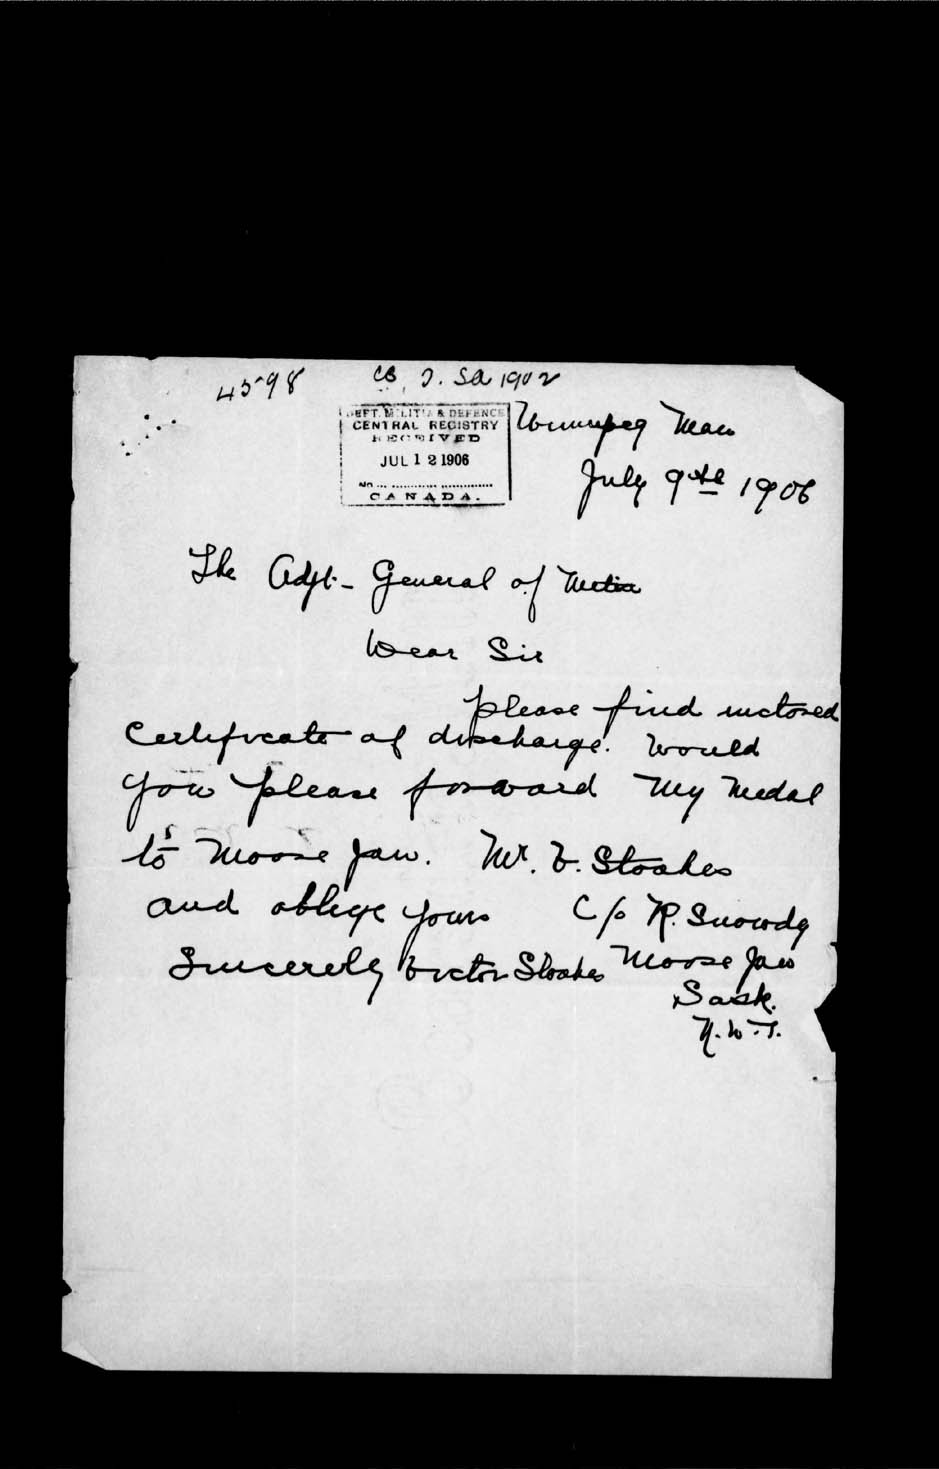 4598 CB, J. SA 1902
DEPT. MILITIA & DEFENCE
CENTRAL REGISTRY
RECEIVED
JUL 12 1906
No.
CANADA.
Winnipeg Man
July 9th 1906
The Adjt- General of
Dear Sir
please find inclosed
certificate of discharge. Would
you please forward my medal
to Moose Jaw. Mr. V. Stoakes
and oblige yours C/o R. Snowdy
Sincerely Victor Stoakes Moose Jaw
Sask.
N.W.T.